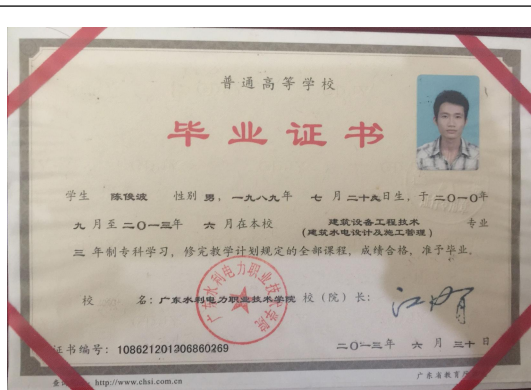 普通高等学校
毕业证书
学生 陈俊波 性别 男，一九八九年 七 月 二十九日生，于 二〇一〇年
九 月至 二〇一三年 六 月在本校 建筑设备工程技术 专业
(建筑水电设计及施工管理)
三 年制专科学习，修完教学计划规定的全部课程，成绩合格，准予毕业。
校 名：广东水利电力职业技术学院 校（院）长：
广东水利电力职业技术学院
证书编号：108621201306860269 二〇一三年 六 月 三十日
http://www.chsi.com.cn 广东省教育